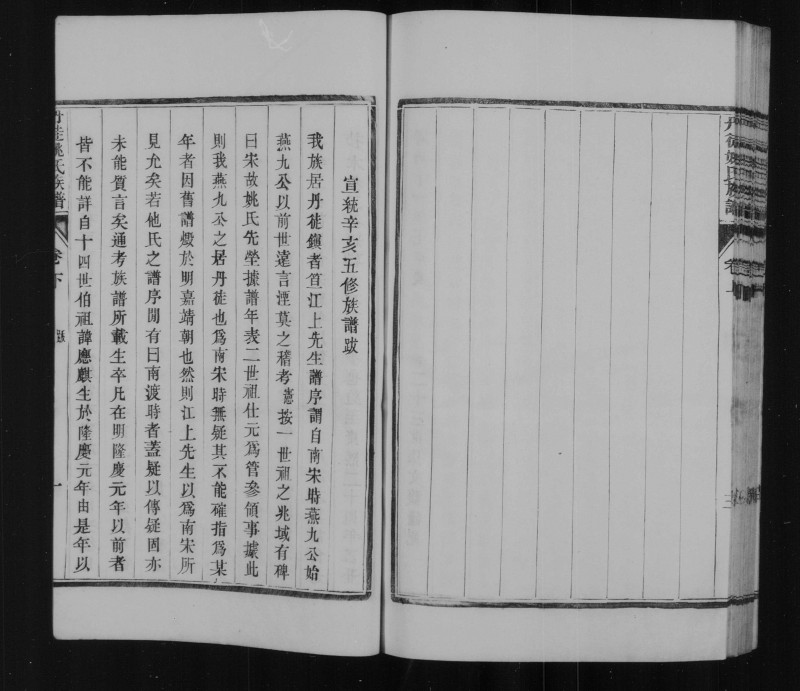 丹徒姚氏族譜
卷下
宣統辛亥五修族譜跋
我族居丹徒鎮者笪江上先生譜序謂自南宋時燕九公始
燕九公以前世遠言湮莫之稽考憲按一世祖之兆域有碑
曰宋故姚氏先塋據譜年表二世祖仕元爲管參領事據此
則我燕九公之居丹徒也爲南宋時無疑其不能確指爲某
年者因舊譜燬於明嘉靖朝也然則江上先生以爲南宋所
見尤矣若他氏之譜序閒有曰南渡時者蓋疑以傳疑固亦
未能質言矣通考族譜所載生卒凡在明隆慶元年以前者
皆不能詳自十四世伯祖諱應麒生於隆慶元年由是年以
丹徒姚氏族譜
卷下
跋
一